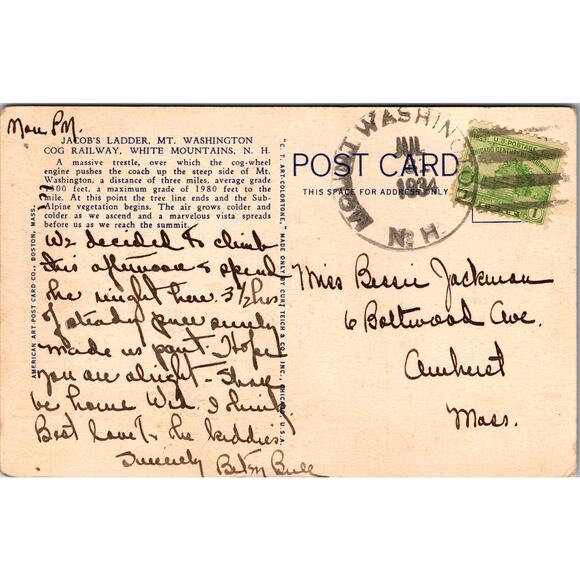 Mon P.M.
JACOB'S LADDER, MT. WASHINGTON
COG RAILWAY, WHITE MOUNTAINS, N. H.
A massive trestle, over which the cog-wheel
engine pushes the coach up the steep side of Mt.
Washington, a distance of three miles, average grade
1300 feet, a maximum grade of 1980 feet to the
mile. At this point the tree line ends and the Sub-
Alpine vegetation begins. The air grows colder and
colder as we ascend and a marvelous vista spreads
before us as we reach the summit.
We decided to climb
this afternoon & spend
the night here. 3 1/2 hrs
of steady surely
made us pant. Hope
you are alright - Shall
be home Wed. I think.
Best love to the kiddies
Sincerely Betsy Bull
AMERICAN ART-POST CARD CO., BOSTON, MASS.
"C. T. ART-COLORTONE," MADE ONLY BY CURT TEICH & CO., INC., CHICAGO, U.S.A.
POST CARD
THIS SPACE FOR ADDRESS ONLY
MOUNT WASHINGTON
JUL
1934
N. H.
U S POSTAGE
1
Miss Bessie Jackman
6 Boltwood Ave.
Amherst
Mass.